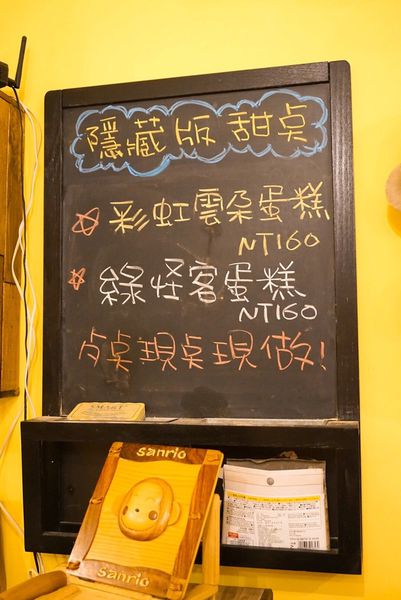 隱藏版甜桌
☆彩虹雲朵蛋糕
NT160
☆綠怪客蛋糕
NT160
現桌現做!
SMART
sanrio
sanrio